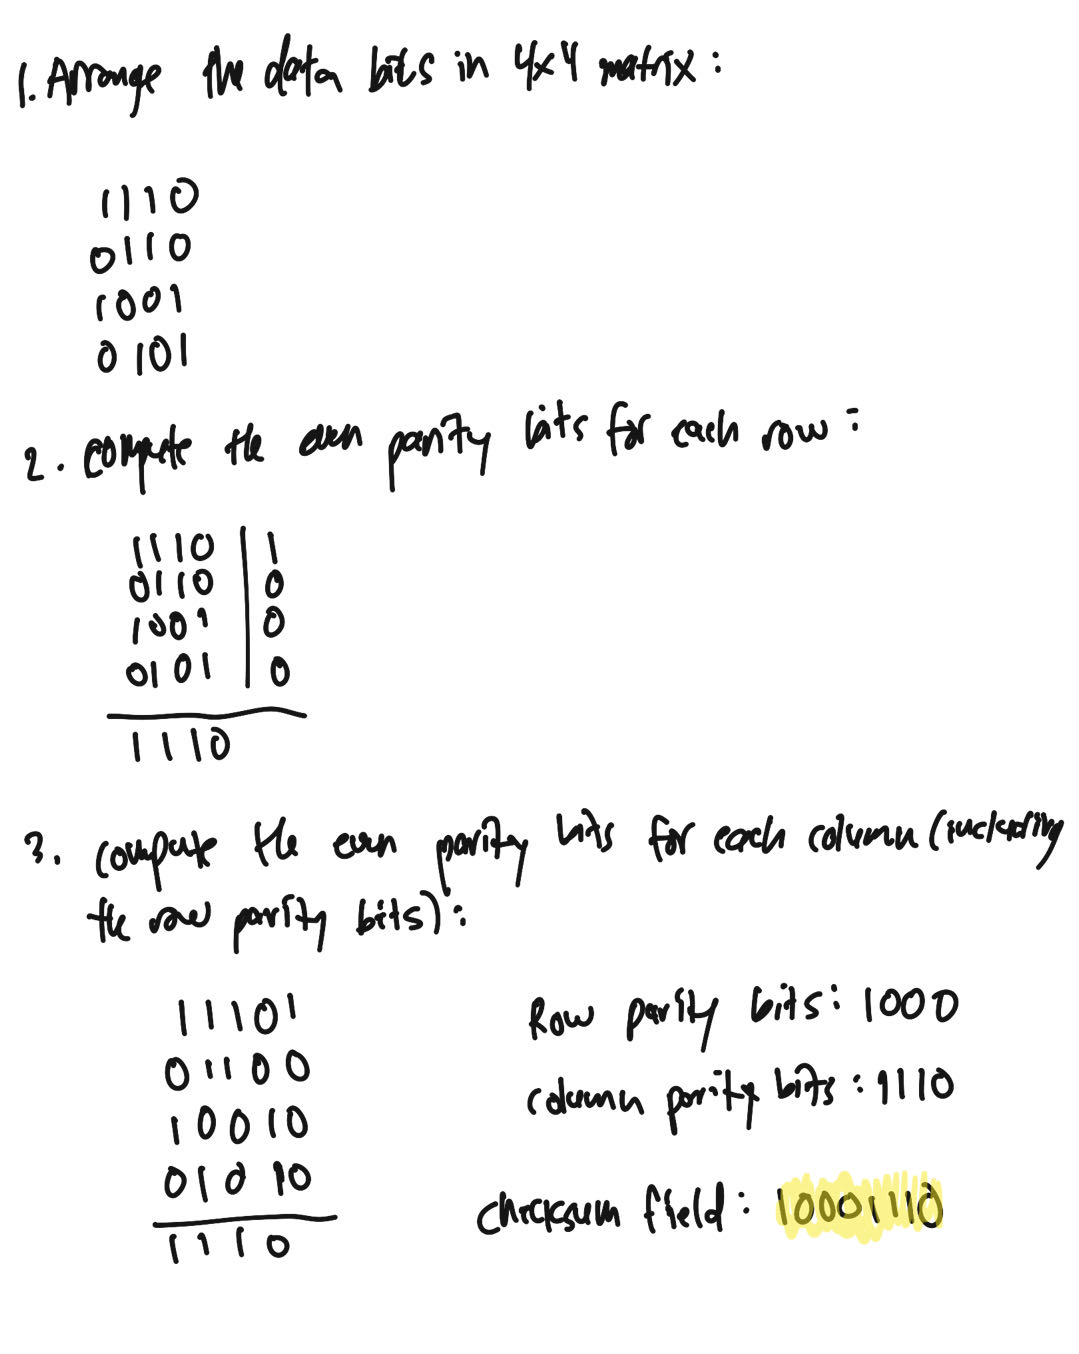 1. Arrange the data bits in 4x4 matrix :
1110
0110
1001
0101
2. compute the even parity bits for each row :
1110 | 1
0110 | 0
1001 | 0
0101 | 0
1110
3. compute the even parity bits for each column (including
the row parity bits) :
11101
01100
10010
01010
1110
Row parity bits : 1000
column parity bits : 1110
checksum field : 10001110